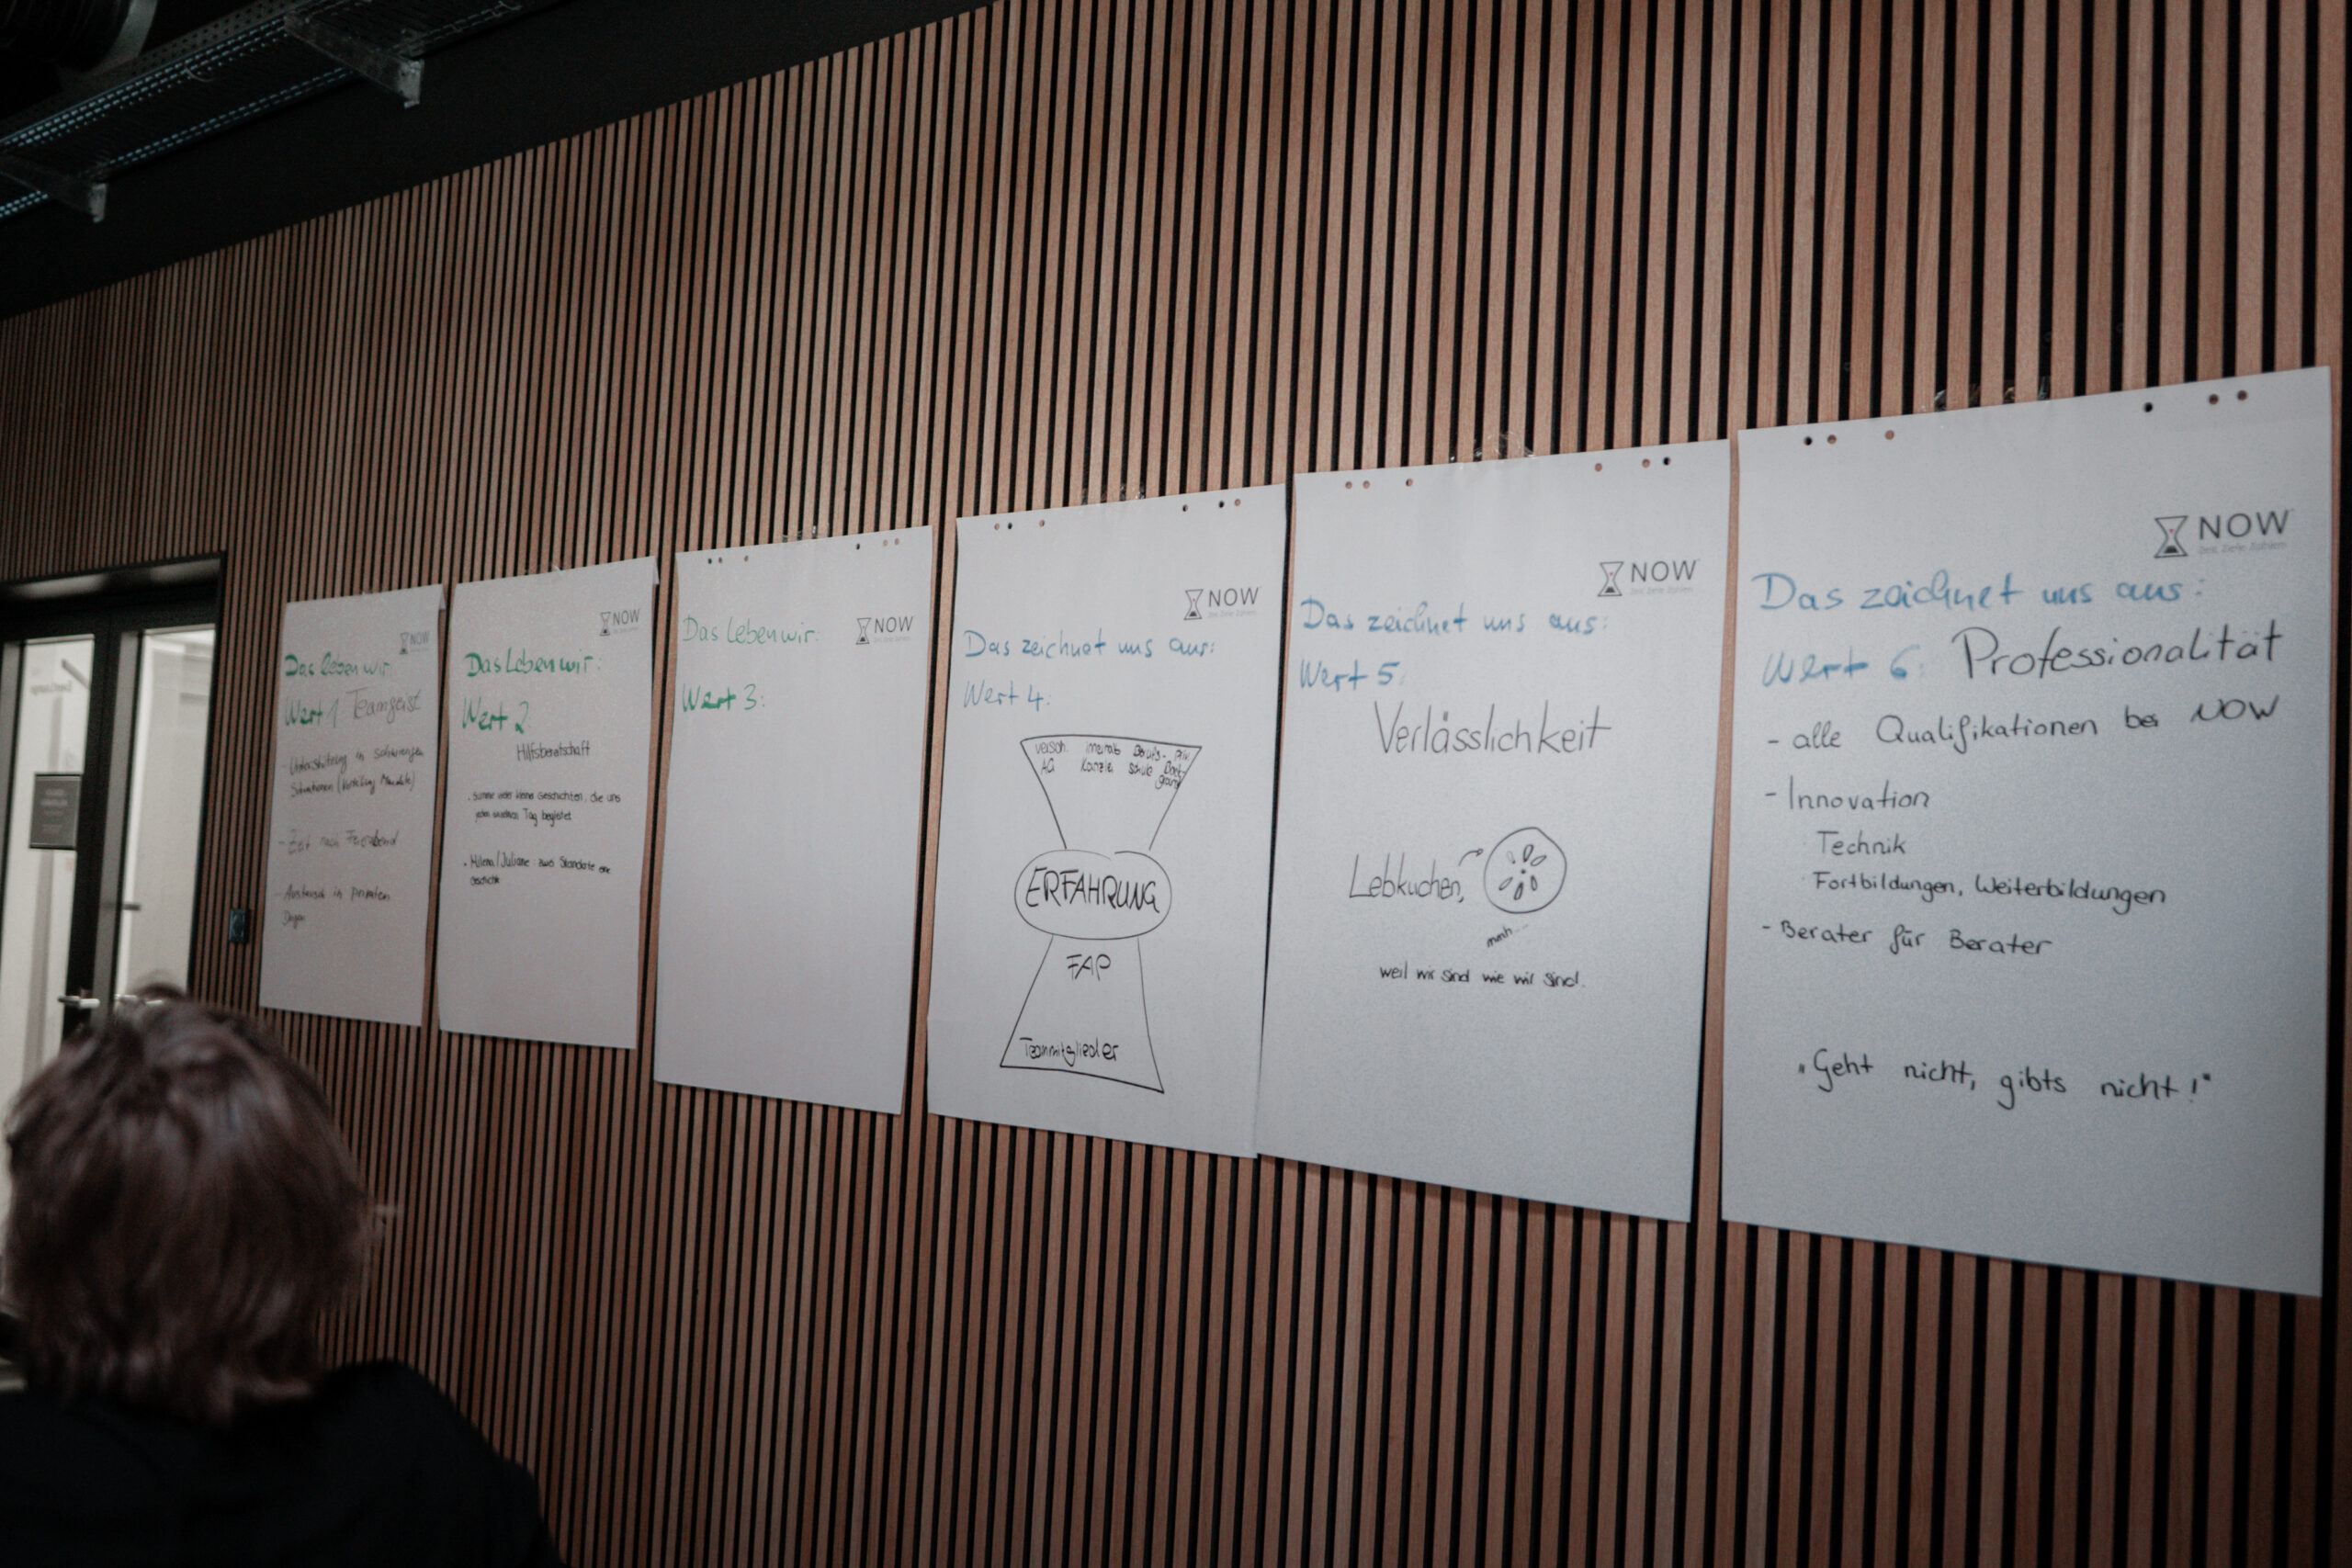 NOW
Das leben wir:
Wert 1 Teamgeist
- Unterstützung in schwierigen
Situationen
- Zeit nach Feierabend
- Austausch in privaten
Dingen
NOW
Das Leben wir:
Wert 2
Hilfsbereitschaft
Geschichten, die uns
Tag begleitet
Milena/Juliane: zwei Standorte eine
Geschichte
NOW
Das Leben wir:
Wert 3:
NOW
Zeit. Ziele. Zahlen.
Das zeichnet uns aus:
Wert 4:
versch. innerhalb Berufs-
AG Kanzlei schule
ERFAHRUNG
FAP
Teammitglieder
NOW
Zeit. Ziele. Zahlen.
Das zeichnet uns aus:
Wert 5:
Verlässlichkeit
Lebkuchen,
mmh...
weil wir sind wie wir sind.
NOW
Zeit. Ziele. Zahlen.
Das zeichnet uns aus:
Wert 6: Professionalität
- alle Qualifikationen bei NOW
- Innovation
Technik
Fortbildungen, Weiterbildungen
- Berater für Berater
„Geht nicht, gibts nicht!"